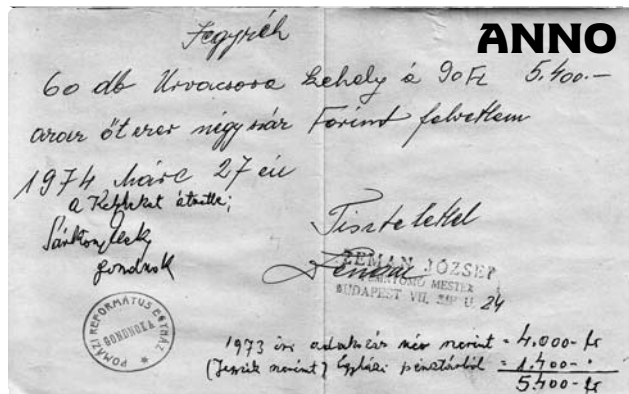 Jegyzék
ANNO
60 db Urvacsora kehely á 90 Ft 5.400.-
azaz ötezer négyszáz Forint felvettem
1974 Márc 27 én
a Kelyheket átvette;
Tisztelettel
gondnok
ZEMAN JÓZSEF
MESTER
BUDAPEST VII. U. 24
POMÁZI REFORMÁTUS EGYHÁZ
GONDNOKA
1973 évi adakozás név szerint = 4.000- fr
(Jegyzék szerint) Egyházi pénztárból = 1.400-
5.400- fr